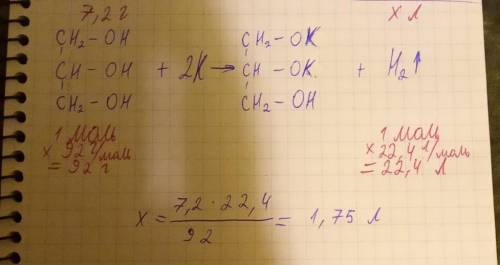 7,2 г х л
CH₂ - OH CH₂ - OK
CH - OH + 2K → CH - OK + H₂↑
CH₂ - OH CH₂ - OH
1 моль 1 моль
x 92 г/моль x 22,4 л/моль
= 92 г = 22,4 л
x = 7,2 · 22,4 / 92 = 1,75 л